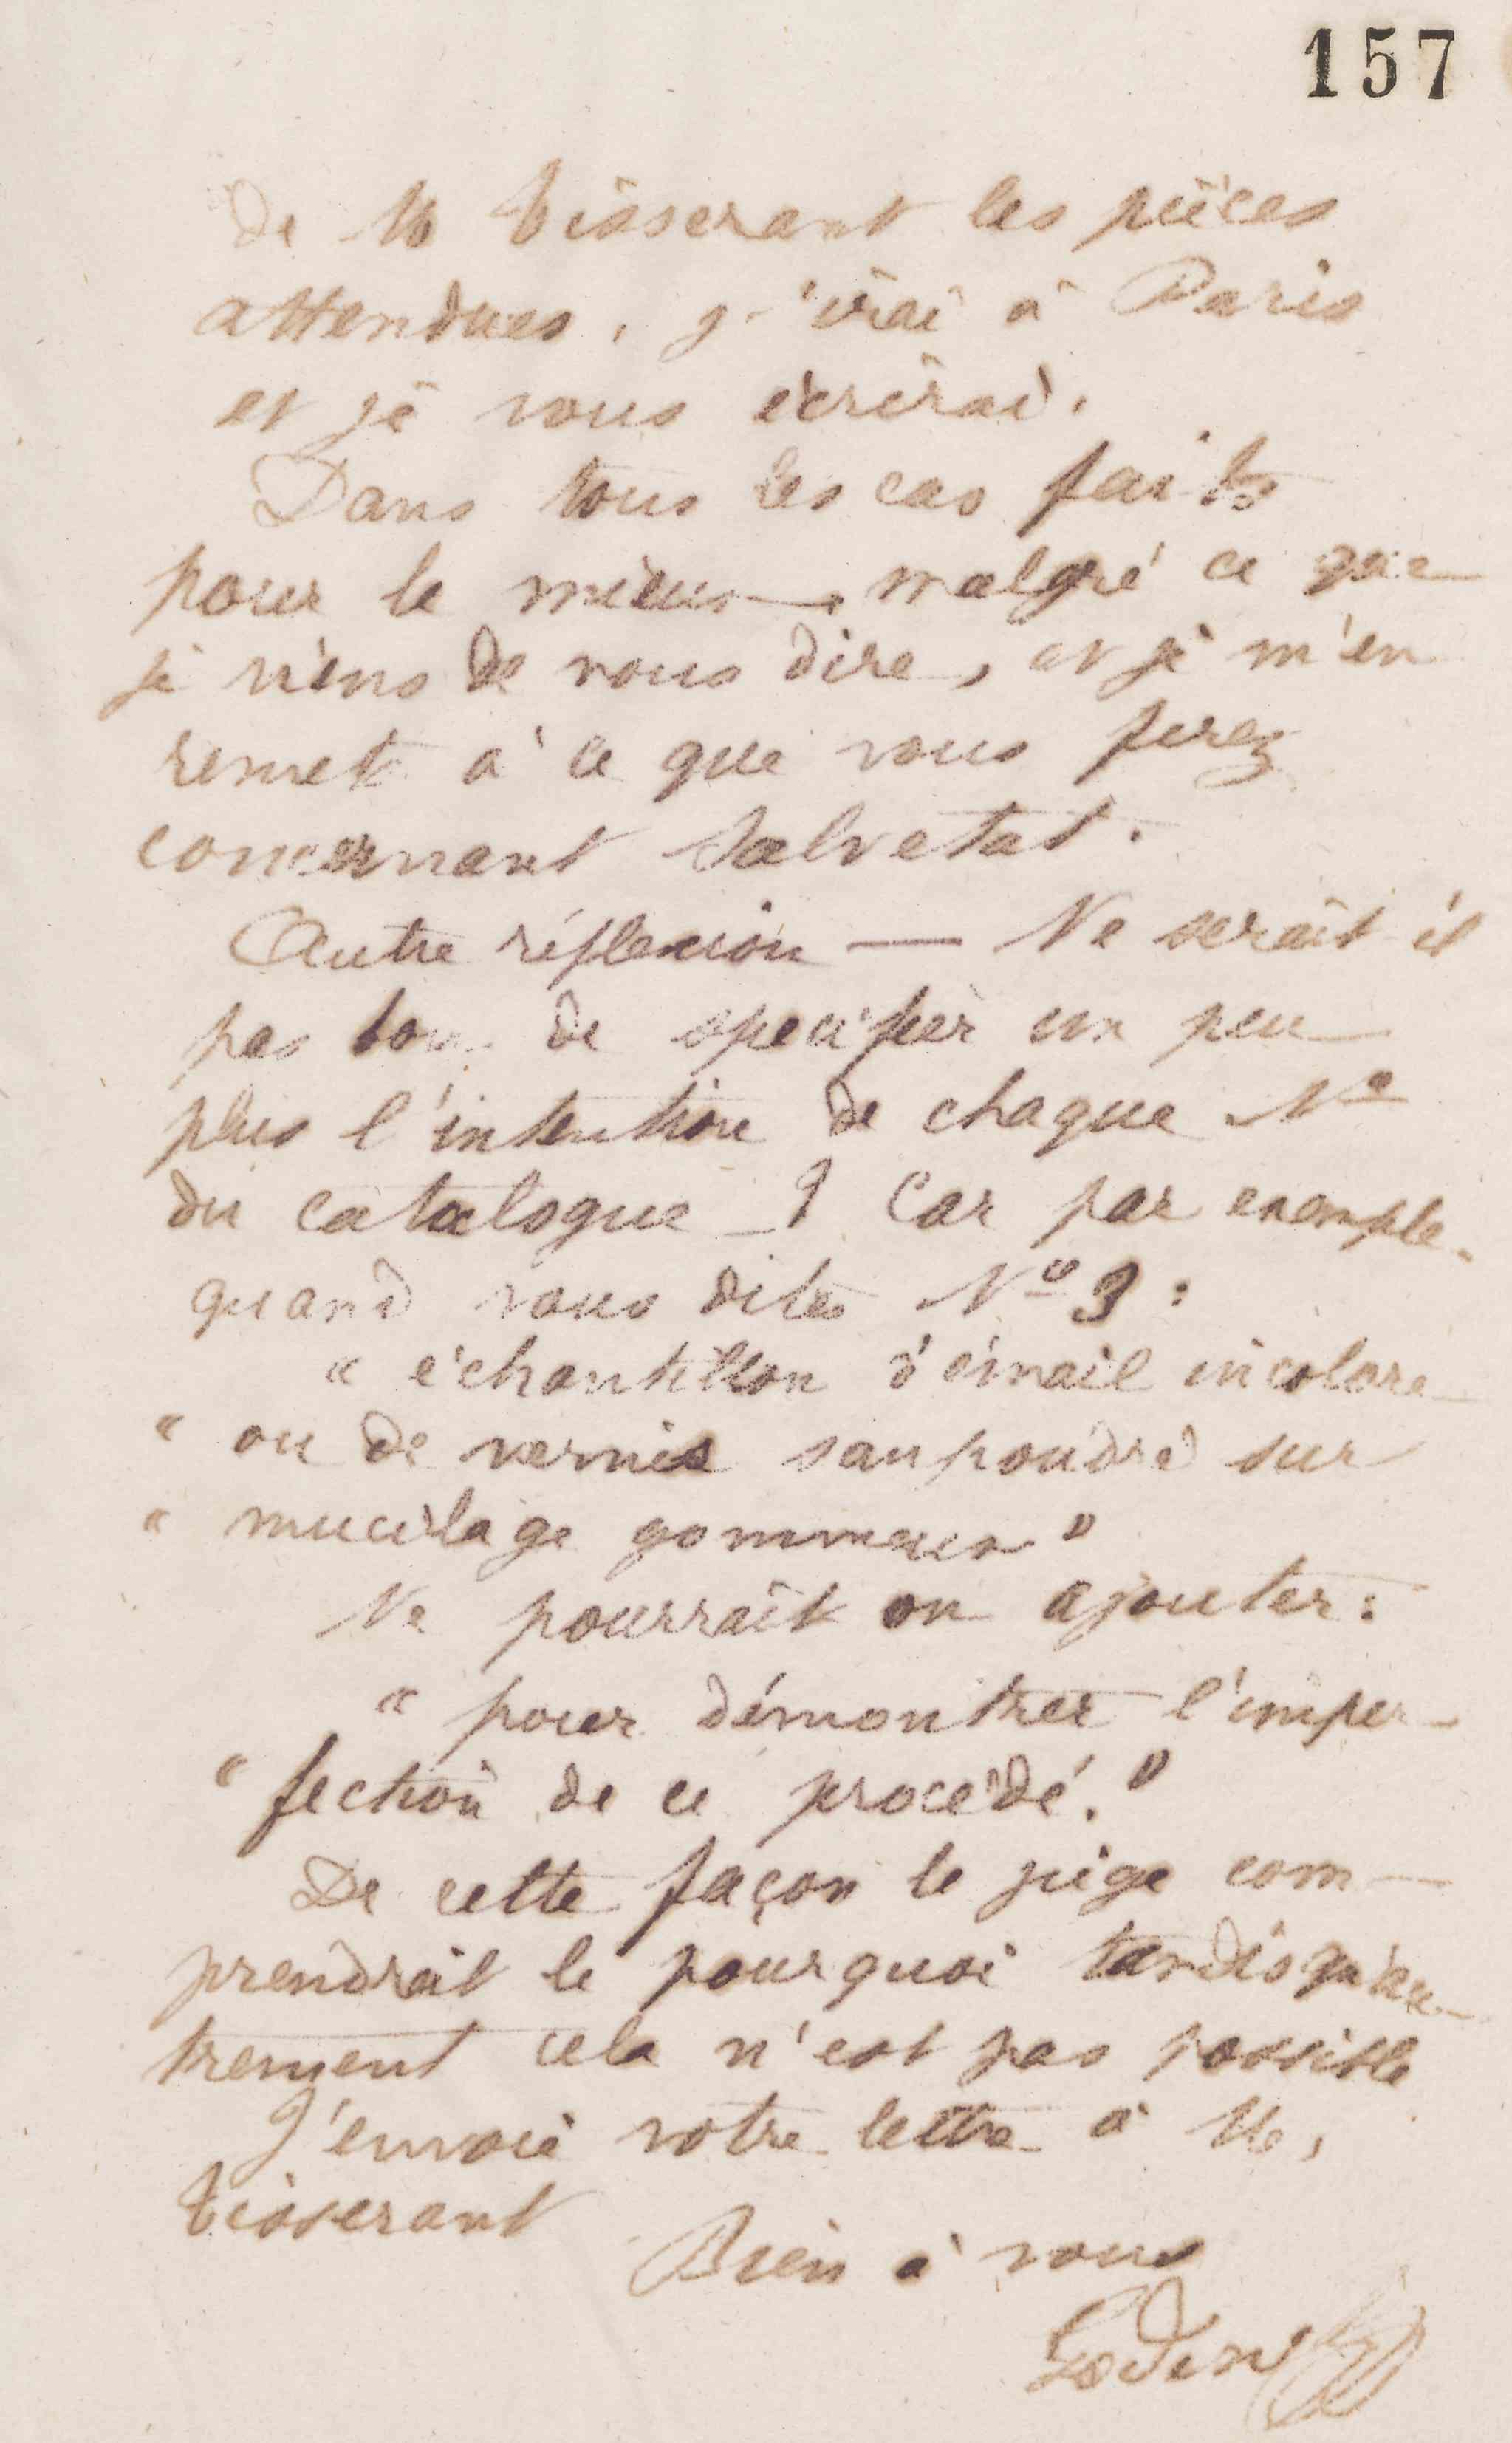 157
de M Tisserant les pièces
attendues, j'irai à Paris
et je vous écrirai.
Dans tous les cas faites
pour le mieux, malgré ce que
je viens de vous dire, et je m'en
remet à ce que vous ferez
concernant Salvetat.
Autre réflexion — Ne serait il
pas bon de specifier un peu
plus l'intention de chaque No
du catalogue ? Car par exemple
quand vous dites No 3 :
" échantillon d'émail incolore
" ou de vernis saupoudré sur
" mucilage gommeux "
Ne pourrait on ajouter :
" pour démontrer l'imper-
" fection de ce procédé. "
De cette façon le juge com-
prendrait le pourquoi tandis qu'au-
trement cela n'est pas possible
J'envoie votre lettre à M.
Tisserant
Bien à vous
Godin